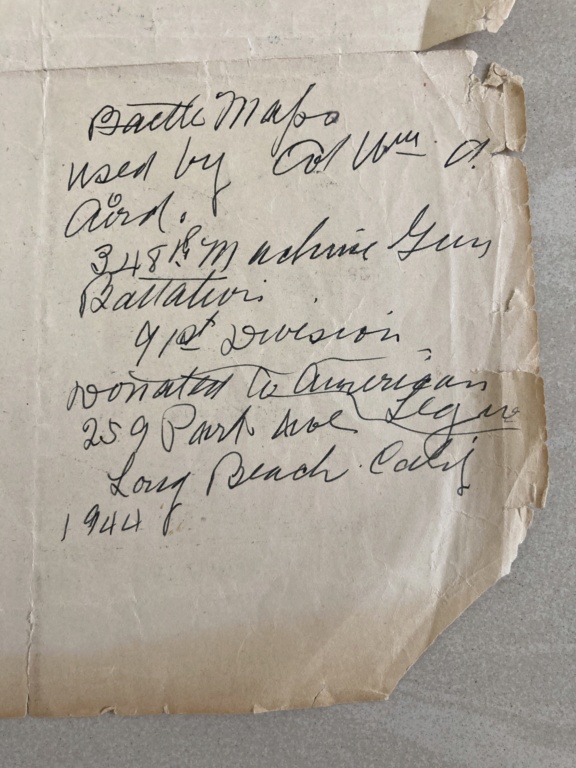 Battle Maps
used by Col Wm. A.
Aird.
348th Machine Gun
Battalion
91st Division
Donated to American
Legion
259 Park Ave
Long Beach. Calif
1944